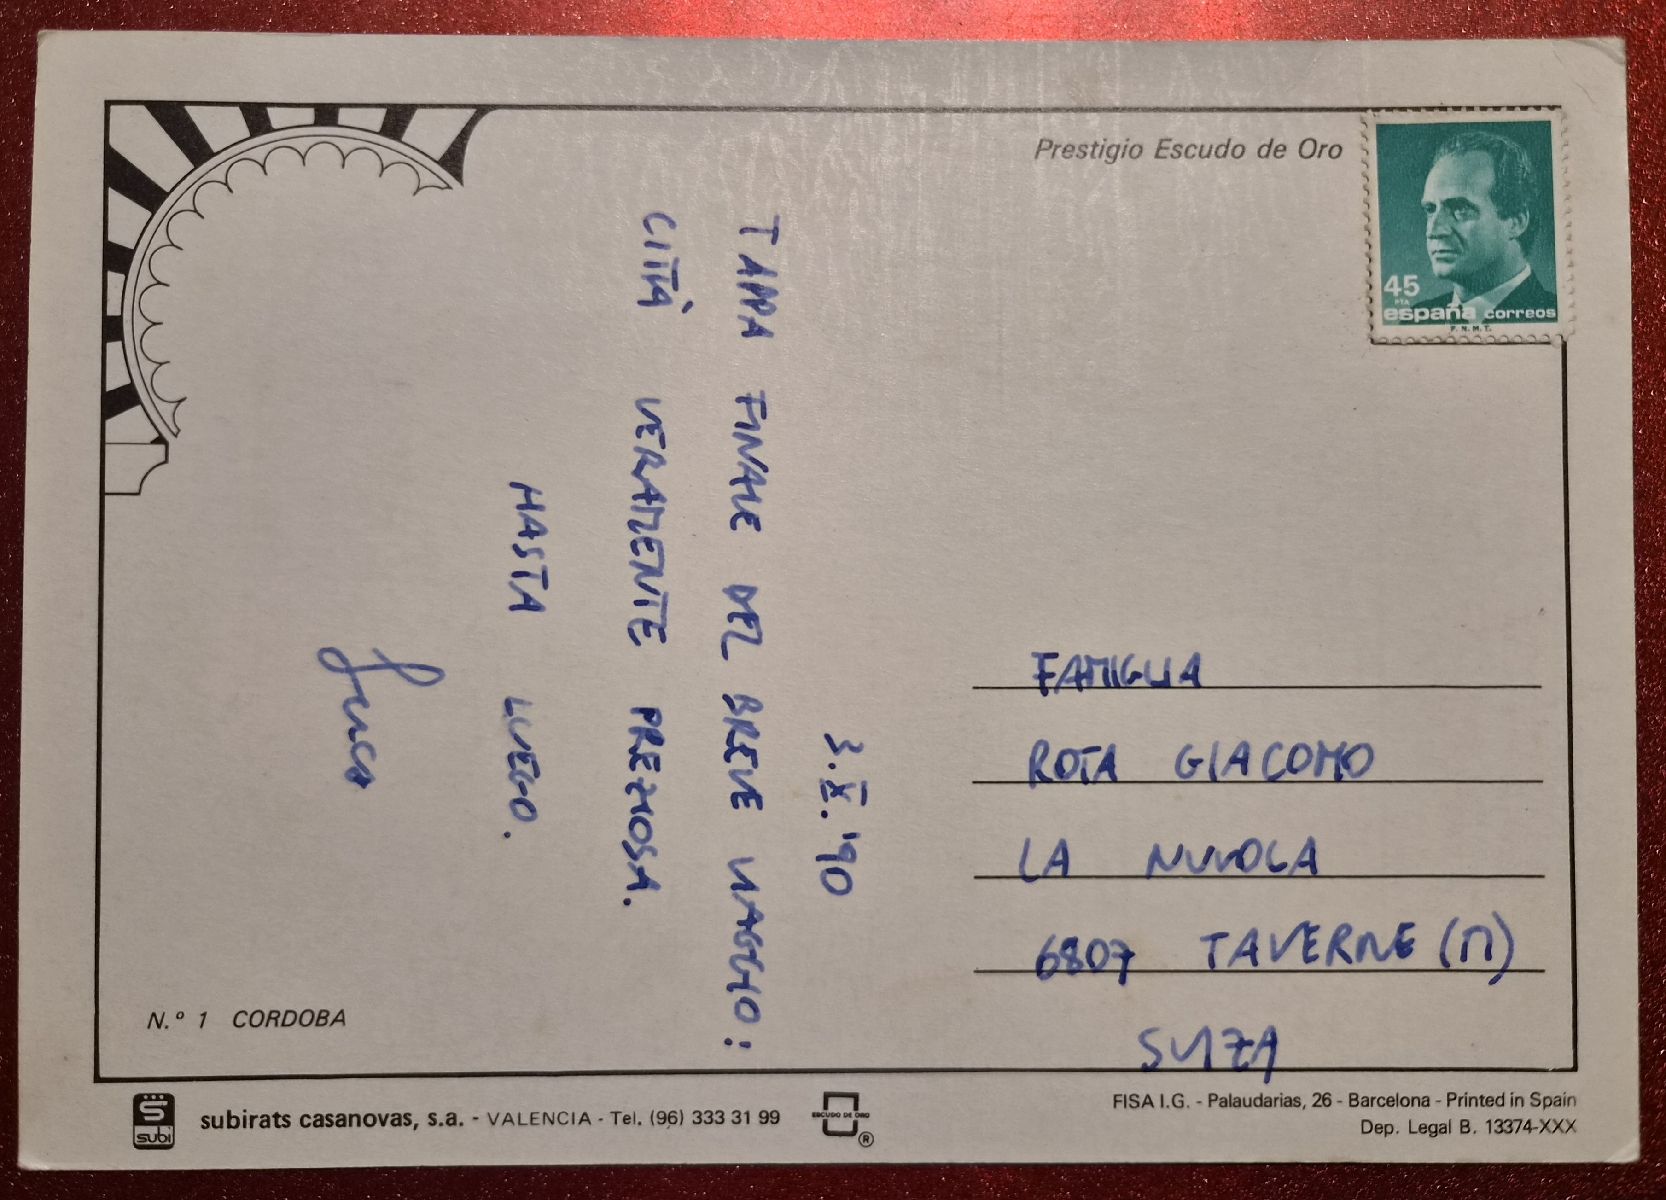 Prestigio Escudo de Oro
45
PTA
españa correos
F.N.M.T.
3.X.'90
TAPPA FINALE DEL BREVE VIAGGIO:
CITTÀ VERAMENTE PREZIOSA.
HASTA LUEGO.
Luca
FAMIGLIA
ROTA GIACOMO
LA NUVOLA
6807 TAVERNE (TI)
SUIZA
N.º 1 CORDOBA
S
subi
subirats casanovas, s.a. - VALENCIA - Tel. (96) 333 31 99
ESCUDO DE ORO
®
FISA I.G. - Palaudarias, 26 - Barcelona - Printed in Spain
Dep. Legal B. 13374-XXX